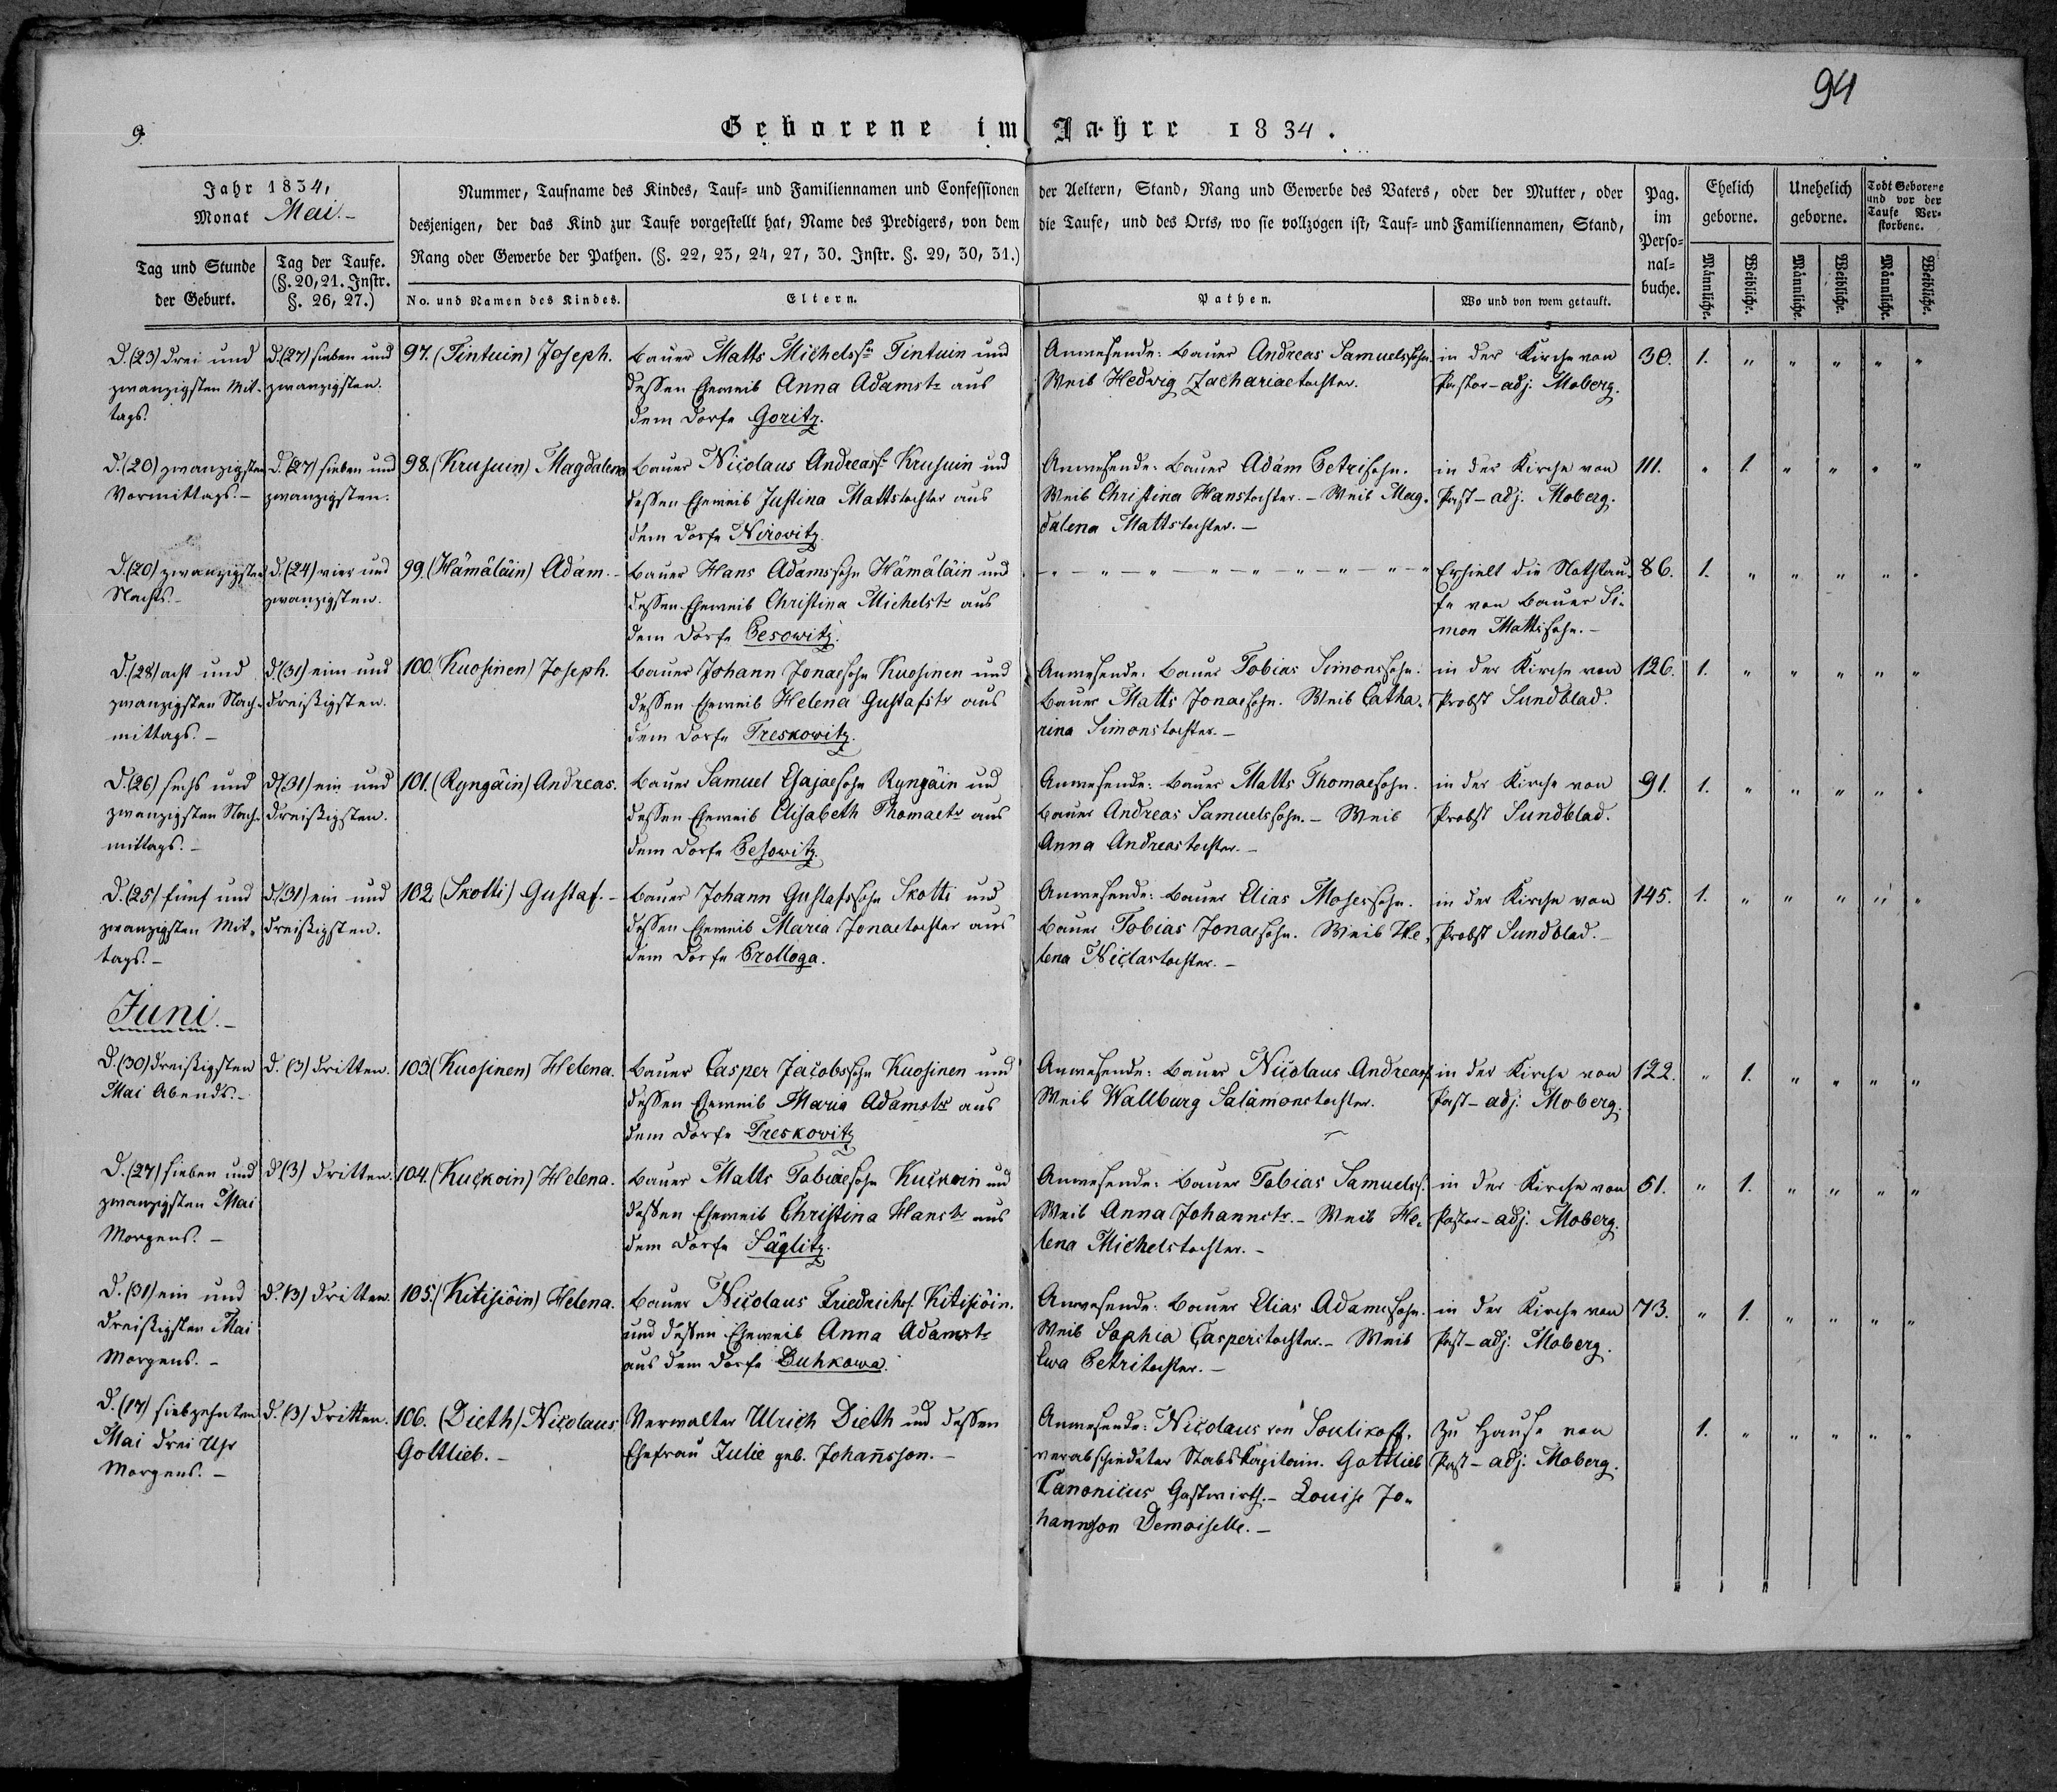 94
9.
Geborene im Jahre 1834.
Jahr 1834,
Monat Mai.-
Tag und Stunde
der Geburt.
Tag der Taufe.
(§. 20, 21. Instr.
§. 26, 27.)
Nummer, Taufname des Kindes, Tauf- und Familiennamen und Confessionen der Aeltern, Stand, Rang und Gewerbe des Vaters, oder der Mutter, oder
desjenigen, der das Kind zur Taufe vorgestellt hat, Name des Predigers, von dem die Taufe, und des Orts, wo sie vollzogen ist, Tauf- und Familiennamen, Stand,
Rang oder Gewerbe der Pathen. (§. 22, 23, 24, 27, 30. Instr. §. 29, 30, 31.)
No. und Namen des Kindes.
Eltern.
Pathen.
Wo und von wem getauft.
Pag.
im
Perso-
nal-
buche.
Ehelich
geborne.
Unehelich
geborne.
Todt Geborene
und vor der
Taufe Ver-
storbene.
Männliche.
Weibliche.
Männliche.
Weibliche.
Männliche.
Weibliche.
D. (23) drei und
zwanzigsten Mit-
tags.
d. (27) sieben und
zwanzigsten.
97. (Tintuin) Joseph.
Bauer Matts Michelssn Tintuin und
dessen Eheweib Anna Adamstr aus
dem Dorfe Goritz.
Anwesende: Bauer Andreas Samuelssohn.
Weib Hedwig Zachariaetochter.
in der Kirche von
Pastor-adj. Moberg.
30. 1. " " " " "
D. (20) zwanzigsten
Vormittags.-
d. (27) sieben und
zwanzigsten.
98. (Krusuin) Magdalena
Bauer Nicolaus Andreass. Krusuin und
dessen Eheweib Justina Mattstochter aus
dem Dorfe Nirowitz.
Anwesende: Bauer Adam Petrisohn.
Weib Christina Hanstochter.- Weib Mag-
dalena Mattstochter.-
in der Kirche von
Past-adj. Moberg.
111. " 1. " " " "
D. (20) zwanzigsten
Nachts.-
d. (24) vier und
zwanzigsten.
99. (Hämäläin) Adam.-
Bauer Hans Adamssohn Hämäläin und
dessen Eheweib Christina Michelstr aus
dem Dorfe Pesowitz.
- " - " - " - " - " - " - " - "
Erhielt die Nothtau-
fe von Bauer Si-
mon Mattisohn.-
86. 1. " " " " "
D. (28) acht und
zwanzigsten Nach-
mittags.-
d. (31) ein und
dreißigsten.
100. (Kuosinen) Joseph.
Bauer Johann Jonaesohn Kuosinen und
dessen Eheweib Helena Gustafstr aus
dem Dorfe Treskowitz.
Anwesende: Bauer Tobias Simonssohn.
Bauer Matts Jonaesohn. Weib Catha-
rina Simonstochter.-
in der Kirche von
Probst Sundblad.
126. 1. " " " " "
D. (26) sechs und
zwanzigsten Nach-
mittags.-
d. (31) ein und
dreißigsten.
101. (Ryngäin) Andreas.
Bauer Samuel Esajaesohn Ryngäin und
dessen Eheweib Elisabeth Thomaetr aus
dem Dorfe Pesowitz.
Anwesende: Bauer Matts Thomaesohn.
Bauer Andreas Samuelssohn.- Weib
Anna Andreastochter.-
in der Kirche von
Probst Sundblad.
91. 1. " " " " "
D. (25) fünf und
zwanzigsten Mit-
tags.-
d. (31) ein und
dreißigsten.
102. (Skotti) Gustaf.-
Bauer Johann Gustafssohn Skotti und
dessen Eheweib Maria Jonaetochter aus
dem Dorfe Prolloga.
Anwesende: Bauer Elias Mosessohn.
Bauer Tobias Jonaesohn. Weib He-
lena Niclastochter.-
in der Kirche von
Probst Sundblad.-
145. 1. " " " " "
Juni.-
D. (30) dreißigsten
Mai Abends.-
d. (3) dritten.
103. (Kuosinen) Helena.
Bauer Casper Jacobssohn Kuosinen und
dessen Eheweib Maria Adamstr aus
dem Dorfe Treskowitz
Anwesende: Bauer Nicolaus Andreass.
Weib Wallburg Salamonstochter.
in der Kirche von
Past-adj. Moberg.
122. " 1. " " " "
D. (27) sieben und
zwanzigsten Mai
Morgens.-
d. (3) dritten.
104. (Kuckoin) Helena.
Bauer Matts Tobiaesohn Kuckoin und
dessen Eheweib Christina Hanstr aus
dem Dorfe Säglitz.
Anwesende: Bauer Tobias Samuelss.
Weib Anna Johannstr.- Weib He-
lena Michelstochter.-
in der Kirche von
Pastor-adj. Moberg.
51. " 1. " " " "
D. (31) ein und
dreißigsten Mai
Morgens.-
d. (3) dritten.
105. (Kitisiöin) Helena.
Bauer Nicolaus Friedrichs. Kitisiöin.
und dessen Eheweib Anna Adamstr
aus dem Dorfe Duhkowa.
Anwesende: Bauer Elias Adamssohn.
Weib Sophia Casperstochter.- Weib
Ewa Petritochter.-
in der Kirche von
Past-adj. Moberg.
73. " 1. " " " "
D. (17) siebzehnten
Mai drei Uhr
Morgens.-
d. (3) dritten.
106. (Dieth) Nicolaus
Gottlieb.-
Verwalter Ulrich Dieth und dessen
Ehefrau Julie geb. Johañsson.-
Anwesende: Nicolaus von Soulikoff,
verabschiedeter Stabskapitain. Gottlieb
Canonicus Gastwirth.- Louise Jo-
hannson Demoiselle.-
Zu Hause von
Past-adj. Moberg.
1. " " " " "